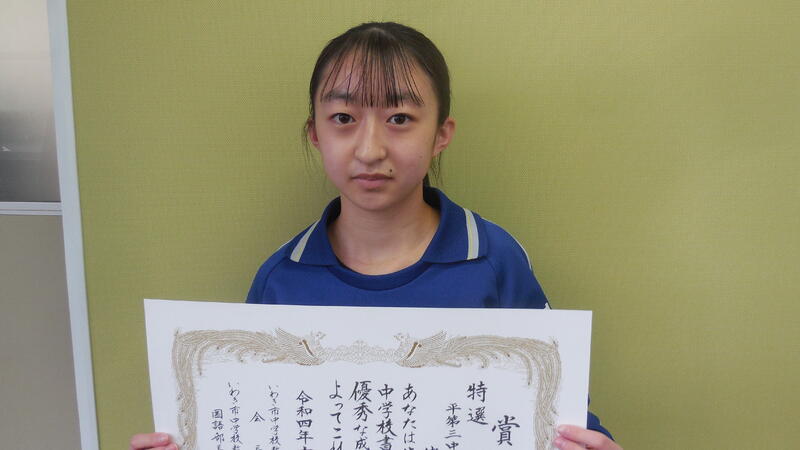 賞
特選
平第三中
あなたは
中学校書
優秀な成
よってこれ
令和四年
いわき市中学校
会
いわき市中学校
国語部